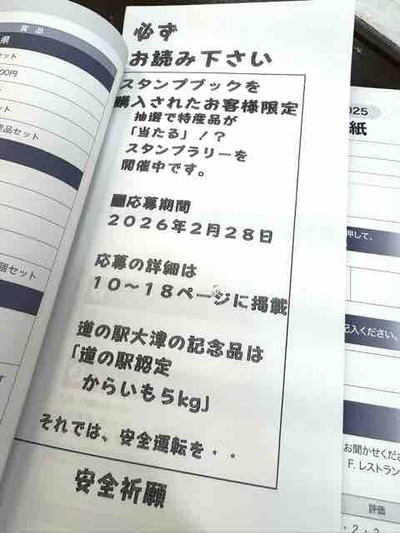 賞品
県
セット
00円
ット
ット
産品セット
細セット
必ず
お読み下さい
スタンプブックを
購入されたお客様限定
抽選で特産品が
「当たる」！？
スタンプラリーを
開催中です。
■応募期間
２０２６年２月２８日
応募の詳細は
１０～１８ページに掲載
道の駅大津の記念品は
「道の駅認定
からいも5kg」
それでは、安全運転を・・
安全祈願
2025
紙
押して、
記入ください。
お聞かせくださ
F. レストラン
評価
・2・3